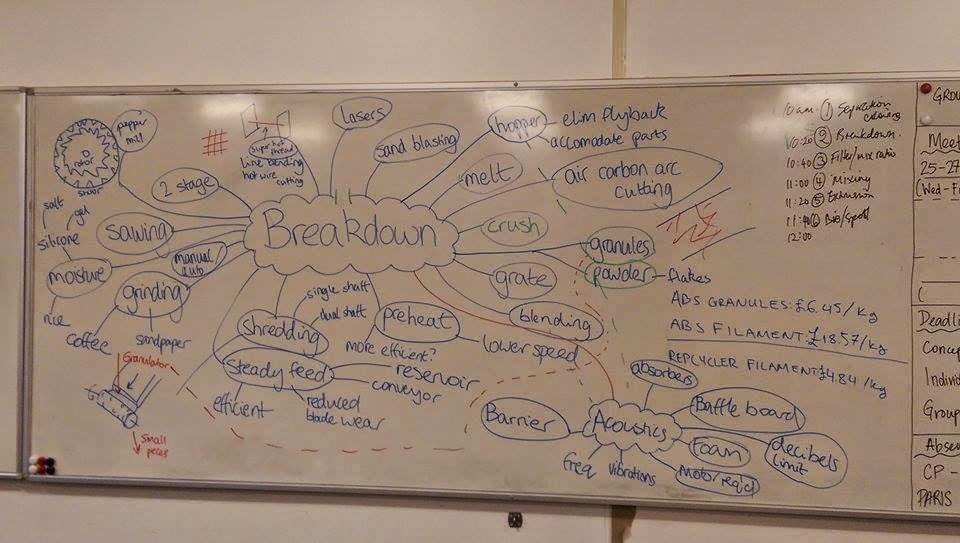 pepper
mill
rotor
stator
salt
gel
silicone
moisture
rice
2 stage
sawing
manual
auto
grinding
coffee
sandpaper
Granulator
Small
pieces
Super hot
thread
line bending
hot wire
cutting
lasers
sand blasting
hopper
elim flyback
accomodate parts
melt
air carbon arc
cutting
crush
Breakdown
granules
powder
flakes
grate
blending
single shaft
dual shaft
shredding
preheat
more efficent?
lower speed
Steady feed
reservoir
conveyor
efficient
reduced
blade wear
ABS GRANULES: £6.45/kg
ABS FILAMENT: £18.57/kg
REPCYCLER FILAMENT: £4.84/kg
absorbers
Baffle board
Barrier
Acoustics
Foam
decibels
limit
freq
vibrations
motor req'd
10am ① Separation
10:20 ② Breakdown
10:40 ③ Filler/mix ratio
11:00 ④ Mixing
11:20 ⑤ Extrusion
11:40 ⑥ Bio/Spool
12:00
GROU
Meet
25-27
(Wed-F
Deadli
Concep
Individ
Group
Abse
CF -
PARIS